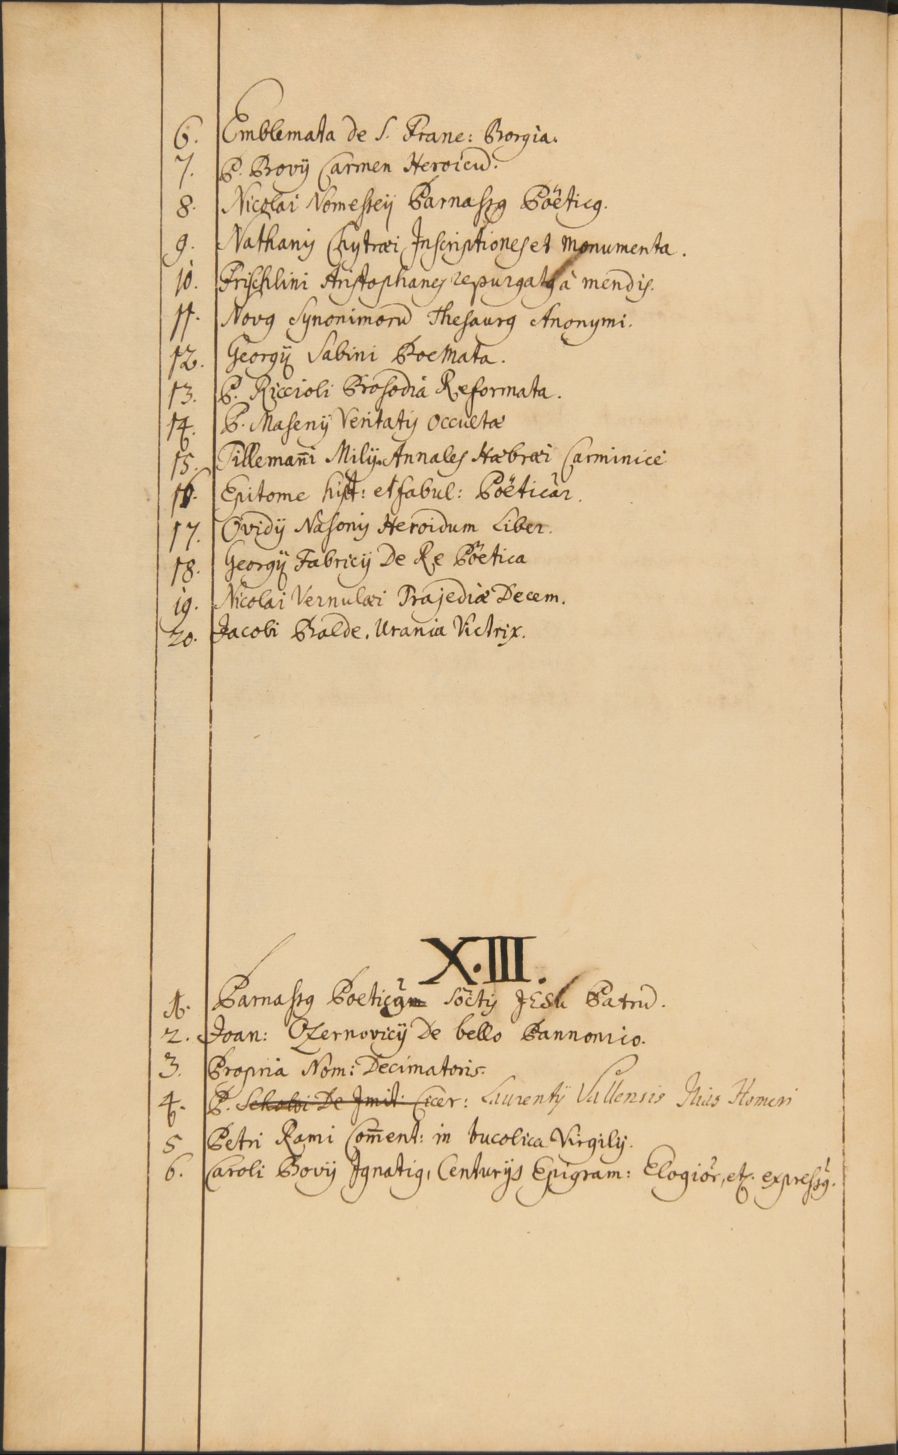 6. Emblemata de S. Franc: Borgia.
7. P. Bovij Carmen Heroicū.
8. Nicolai Nomesseij Parnassꝯ Pöeticꝯ.
9. Nathanis Chytræi Inscriptiones et Monumenta.
10. Frischlini Aristophanes repurgatꝯ à mendis.
11. Novꝯ Synonimorū Thesaurꝯ Anonymi.
12. Georgij Sabini Poemata.
13. P. Riccioli Prosodia Reformata.
14. P. Masenij Veritatis occultæ
15. Tillemañi Milij. Annales Hæbræi Carminicè
16. Epitome hist: et fabul: Pöeticar.
17. Ovidij Nasonis Heroidum Liber.
18. Georgij Fabricij De Re Pöetica
19. Nicolai Vernulæi Trajediæ Decem.
20. Jacobi Balde. Urania Victrix.
X.III.
1. Parnassꝯ Poeticꝯ Soctis JESU Patrū.
2. Joan: Czernovicij De bello Pannonico.
3. Propria Nom: Decimatoris.
4. P. De Imit: Cicer: Laurentij Vallensis Ilias Homeri
5 Petri Rami Coment: in bucolica Virgilij.
6. Caroli Bovij Ignatiꝯ, Centurijs Epigram: Elogior, etc. expressꝯ.